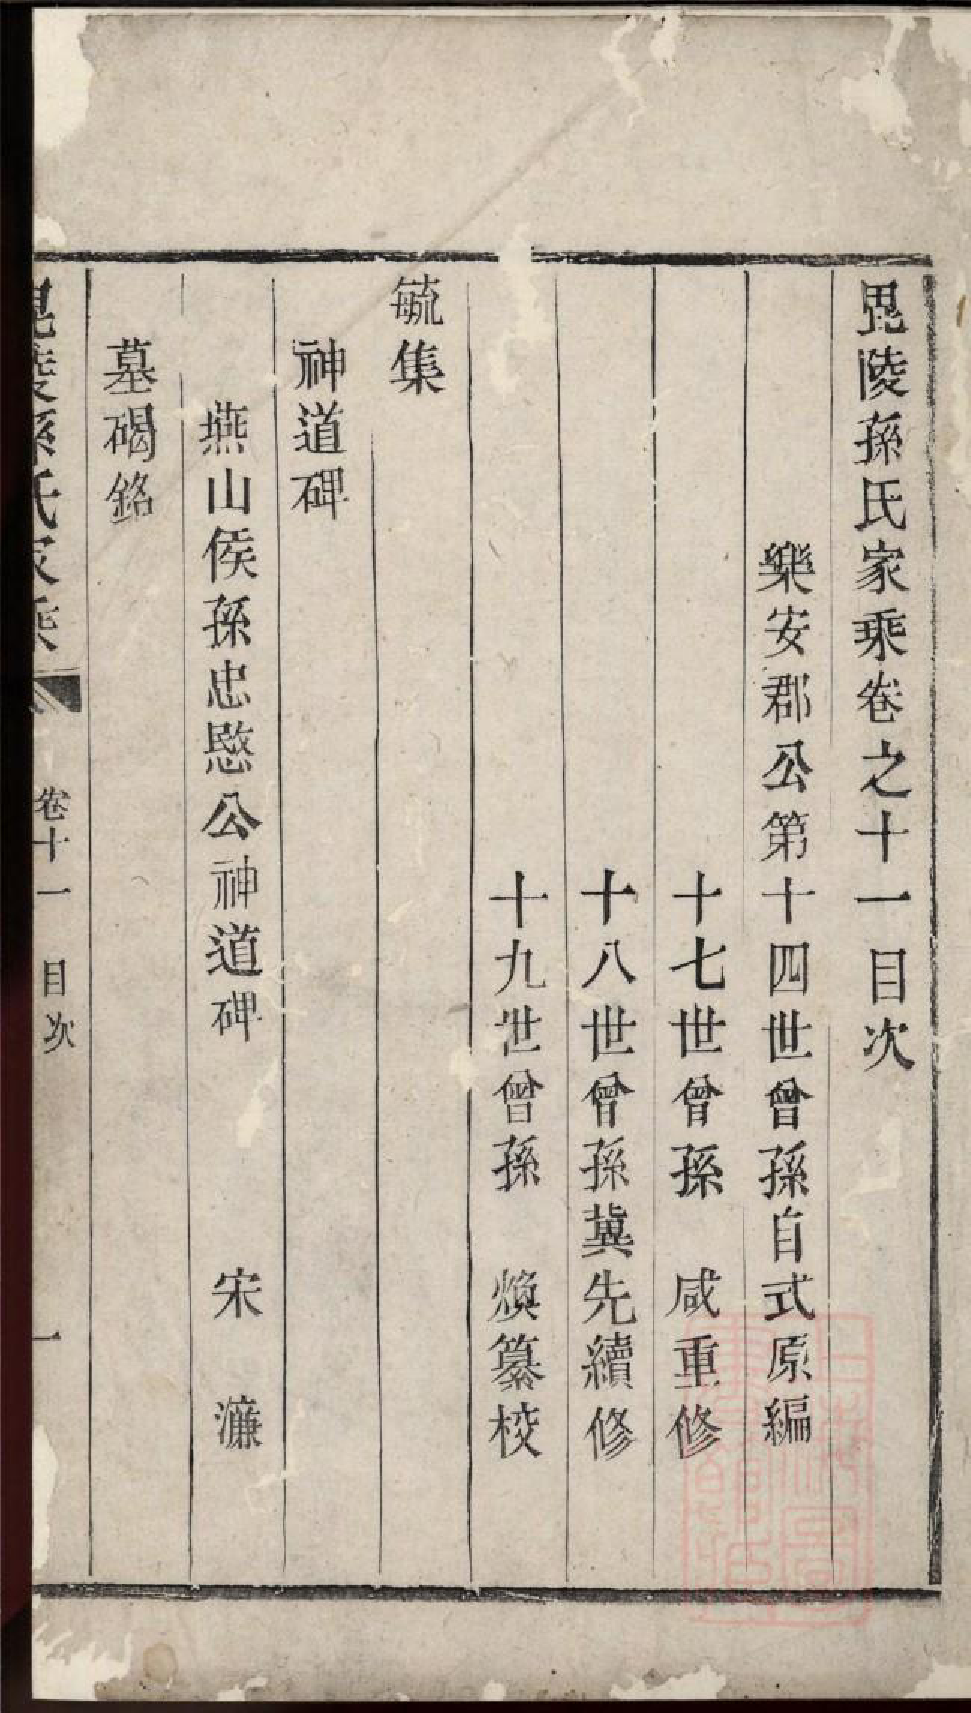 毘陵孫氏家乘卷之十一目次
樂安郡公第十四世曾孫自式原編
十七世曾孫　咸重修
十八世曾孫冀先續修
十九世曾孫　煥纂校
毓集
神道碑
燕山侯孫忠愍公神道碑　宋　濂
墓碣銘
毘陵孫氏家乘　卷十一　目次　一